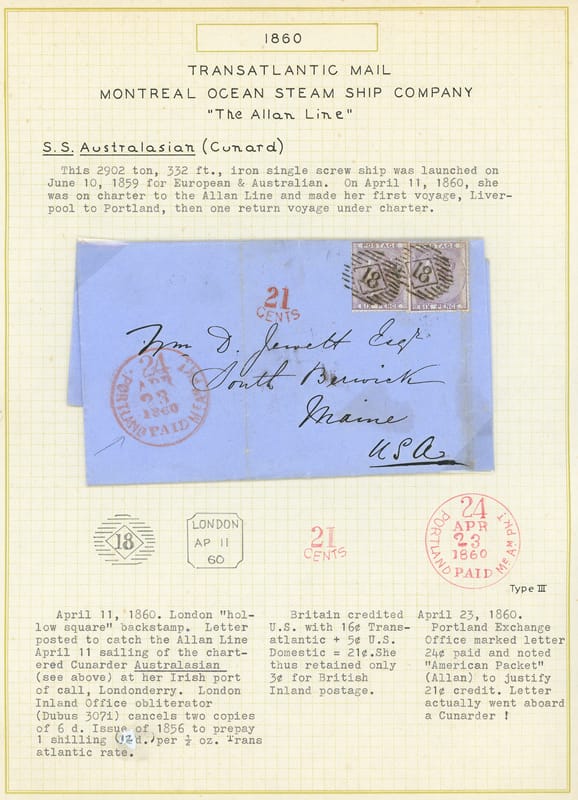 1860
TRANSATLANTIC MAIL
MONTREAL OCEAN STEAM SHIP COMPANY
"The Allan Line"
S.S. Australasian (Cunard)
This 2902 ton, 332 ft., iron single screw ship was launched on
June 10, 1859 for European & Australian. On April 11, 1860, she
was on charter to the Allan Line and made her first voyage, Liver-
pool to Portland, then one return voyage under charter.
POSTAGE POSTAGE
18 18
SIX PENCE SIX PENCE
21
CENTS
Wm D. Jewett Esqr
South Berwick
Maine
USA
PORTLAND ME AM PKT
24
APR
23
1860
PAID
18
LONDON
AP 11
60
21
CENTS
PORTLAND ME AM PKT
24
APR
23
1860
PAID
Type III
April 11, 1860. London "hol-
low square" backstamp. Letter
posted to catch the Allan Line
April 11 sailing of the chart-
ered Cunarder Australasian
(see above) at her Irish port
of call, Londonderry. London
Inland Office obliterator
(Dubus 307i) cancels two copies
of 6 d. Issue of 1856 to prepay
1 shilling (12d.) per ½ oz. Trans
atlantic rate.
Britain credited
U.S. with 16¢ Trans-
atlantic + 5¢ U.S.
Domestic = 21¢. She
thus retained only
3¢ for British
Inland postage.
April 23, 1860.
Portland Exchange
Office marked letter
24¢ paid and noted
"American Packet"
(Allan) to justify
21¢ credit. Letter
actually went aboard
a Cunarder !